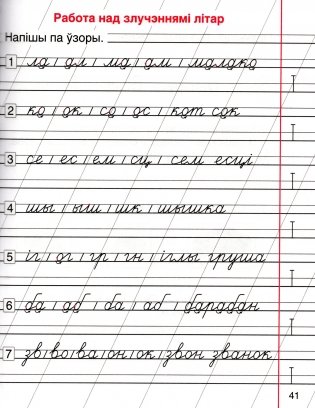 Работа над злучэннямі літар
Напішы па ўзоры.
1 ла / ал / ма / ам / малако
2 ка / ак / са / ас / кот сок
3 се / ес / ем / сц / сем есці
4 шы / ыш / шк / шышка
5 іг / аг / гр / гн / іглы груша
6 ба / аб / ба / аб / барабан
7 зв / во / ва / он / ок / звон званок
41